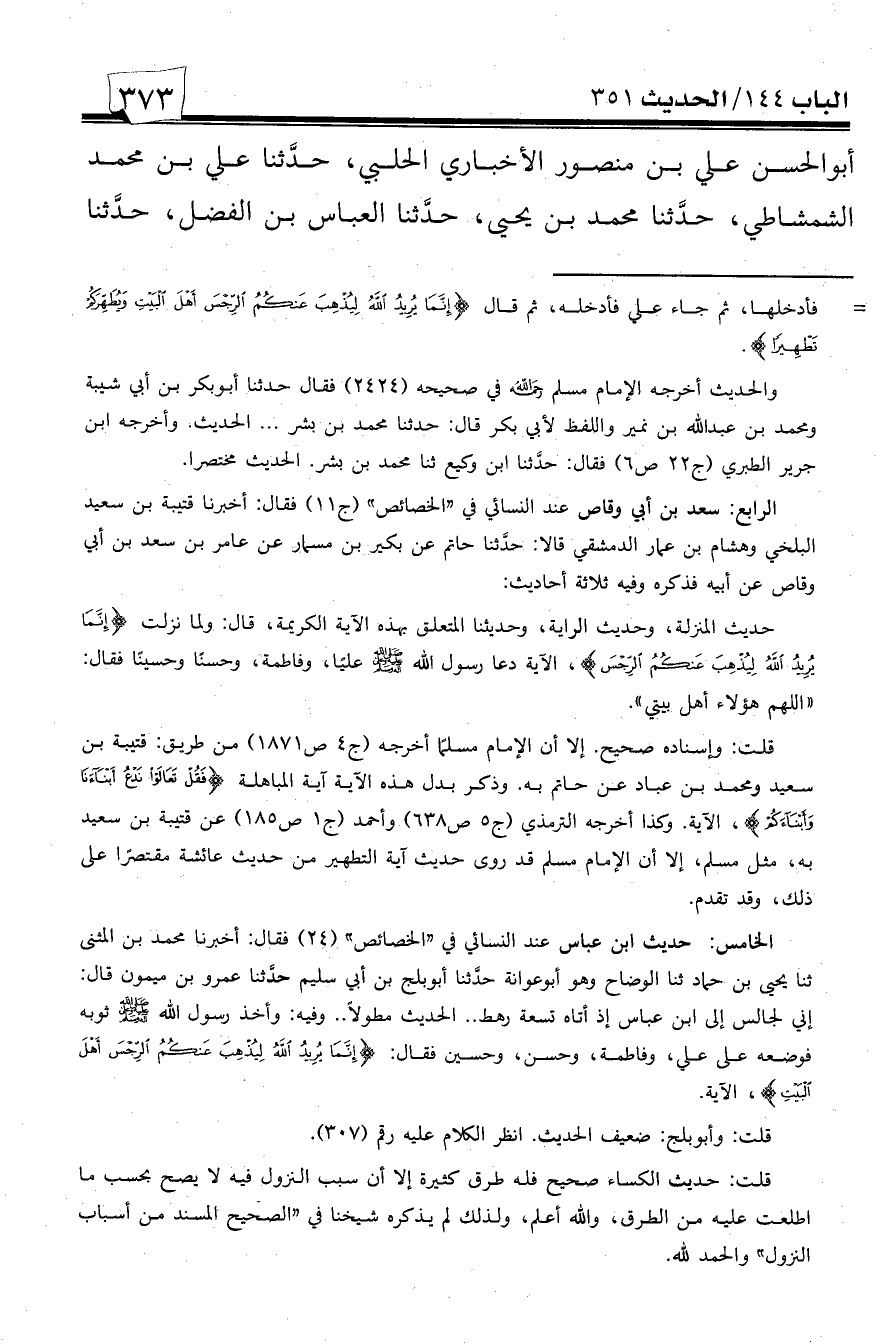 الباب ١٤٤/الحديث ٣٥١
٣٧٣
أبوالحسن علي بن منصور الأخباري الحلبي، حدَّثنا علي بن محمد
الشمشاطي، حدَّثنا محمد بن يحيى، حدَّثنا العباس بن الفضل، حدَّثنا
= فأدخلهـا، ثم جـاء علـي فأدخلـه، ثم قـال ﴿إِنَّمَا يُرِيدُ اللَّهُ لِيُذْهِبَ عَنكُمُ الرِّجْسَ أَهْلَ الْبَيْتِ وَيُطَهِّرَكُمْ
تَطْهِيرًا﴾.
والحديث أخرجه الإمام مسلم رحمه الله في صحيحه (٢٤٢٤) فقال حدثنا أبوبكر بن أبي شيبة
ومحمد بن عبدالله بن نمير واللفظ لأبي بكر قال: حدثنا محمد بن بشر ... الحديث. وأخرجه ابن
جرير الطبري (ج٢٢ ص٦) فقال: حدَّثنا ابن وكيع ثنا محمد بن بشر. الحديث مختصرا.
الرابع: سعد بن أبي وقاص عند النسائي في "الخصائص" (ج١١) فقال: أخبرنا قتيبة بن سعيد
البلخي وهشام بن عمار الدمشقي قالا: حدَّثنا حاتم عن بكير بن مسمار عن عامر بن سعد بن أبي
وقاص عن أبيه فذكره وفيه ثلاثة أحاديث:
حديث المنزلة، وحديث الراية، وحديثنا المتعلق بهذه الآية الكريمة، قال: ولما نزلت ﴿إِنَّمَا
يُرِيدُ اللَّهُ لِيُذْهِبَ عَنكُمُ الرِّجْسَ﴾، الآية دعا رسول الله ﷺ عليًا، وفاطمة، وحسنًا وحسينًا فقال:
«اللهم هؤلاء أهل بيتي».
قلت: وإسناده صحيح. إلا أن الإمام مسلمًا أخرجه (ج٤ ص١٨٧١) من طريق: قتيبة بن
سعيد ومحمد بن عباد عن حاتم به. وذكر بدل هذه الآية آية المباهلة ﴿فَقُلْ تَعَالَوْا نَدْعُ أَبْنَاءَنَا
وَأَبْنَاءَكُمْ﴾، الآية. وكذا أخرجه الترمذي (ج٥ ص٦٣٨) وأحمد (ج١ ص١٨٥) عن قتيبة بن سعيد
به، مثل مسلم، إلا أن الإمام مسلم قد روى حديث آية التطهير من حديث عائشة مقتصرًا على
ذلك، وقد تقدم.
الخامس: حديث ابن عباس عند النسائي في "الخصائص" (٢٤) فقال: أخبرنا محمد بن المثنى
ثنا يحيى بن حماد ثنا الوضاح وهو أبوعوانة حدَّثنا أبوبلج بن أبي سليم حدَّثنا عمرو بن ميمون قال:
إني لجالس إلى ابن عباس إذ أتاه تسعة رهط.. الحديث مطولاً.. وفيه: وأخذ رسول الله ﷺ ثوبه
فوضعه على علي، وفاطمة، وحسن، وحسين فقال: ﴿إِنَّمَا يُرِيدُ اللَّهُ لِيُذْهِبَ عَنكُمُ الرِّجْسَ أَهْلَ
الْبَيْتِ﴾، الآية.
قلت: وأبوبلج: ضعيف الحديث. انظر الكلام عليه رقم (٣٠٧).
قلت: حديث الكساء صحيح فله طرق كثيرة إلا أن سبب النزول فيه لا يصح بحسب ما
اطلعت عليه من الطرق، والله أعلم، ولذلك لم يذكره شيخنا في "الصحيح المسند من أسباب
النزول" والحمد لله.